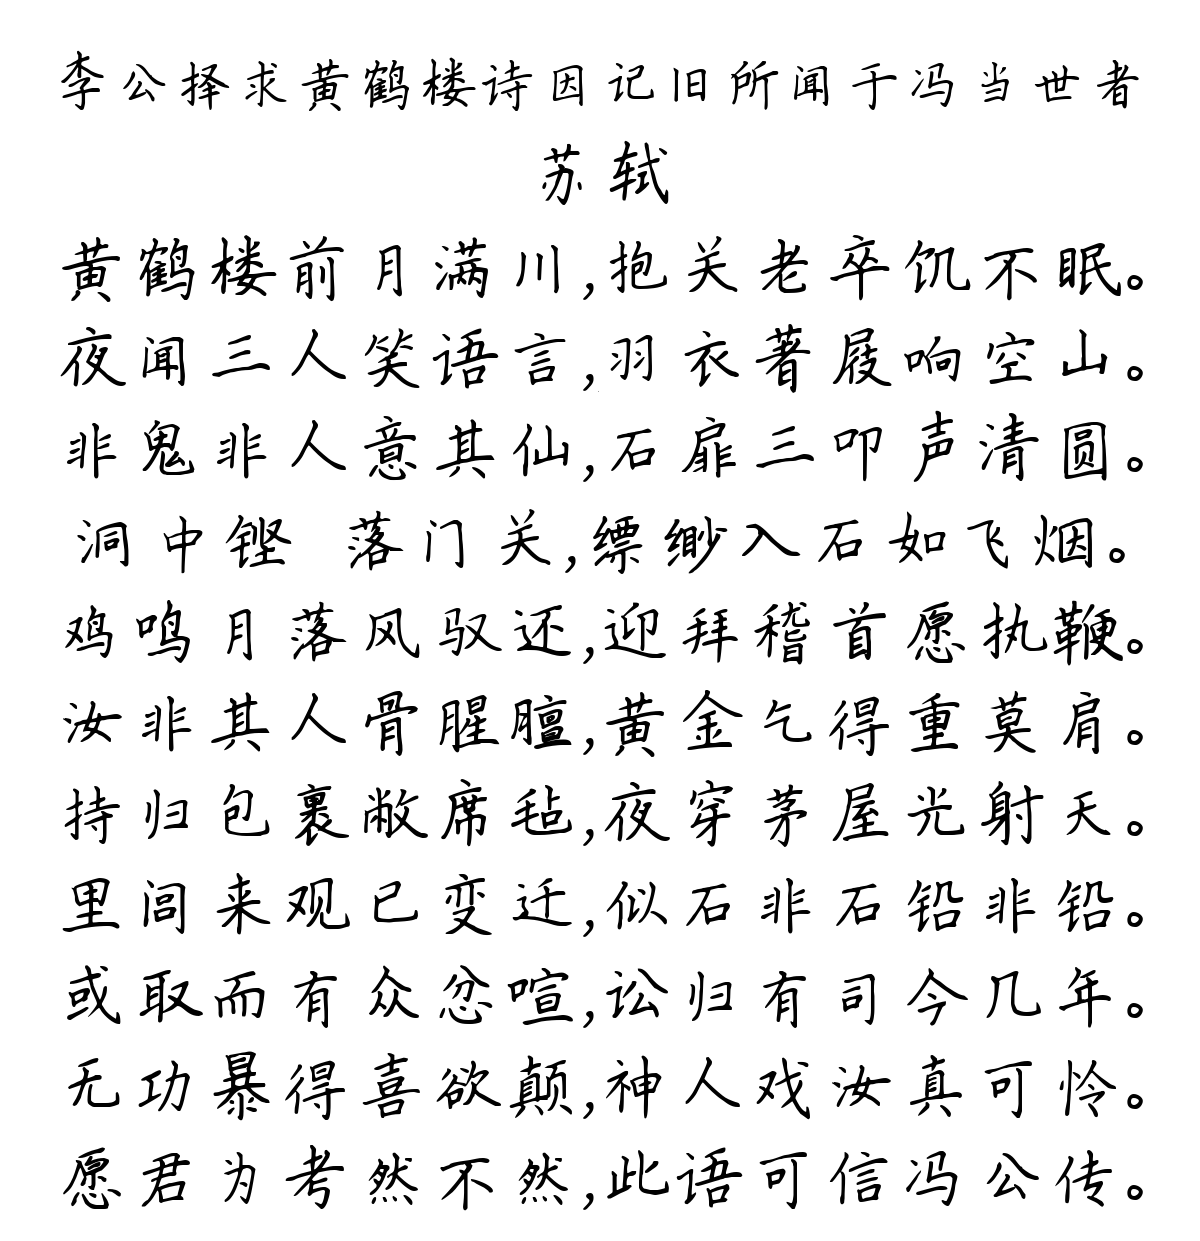 李公择求黄鹤楼诗因记旧所闻于冯当世者
苏轼
黄鹤楼前月满川,抱关老卒饥不眠。
夜闻三人笑语言,羽衣著屐响空山。
非鬼非人意其仙,石扉三叩声清圆。
洞中铿 落门关,缥缈入石如飞烟。
鸡鸣月落风驭还,迎拜稽首愿执鞭。
汝非其人骨腥膻,黄金乞得重莫肩。
持归包裹敝席毡,夜穿茅屋光射天。
里闾来观已变迁,似石非石铅非铅。
或取而有众忿喧,讼归有司今几年。
无功暴得喜欲颠,神人戏汝真可怜。
愿君为考然不然,此语可信冯公传。